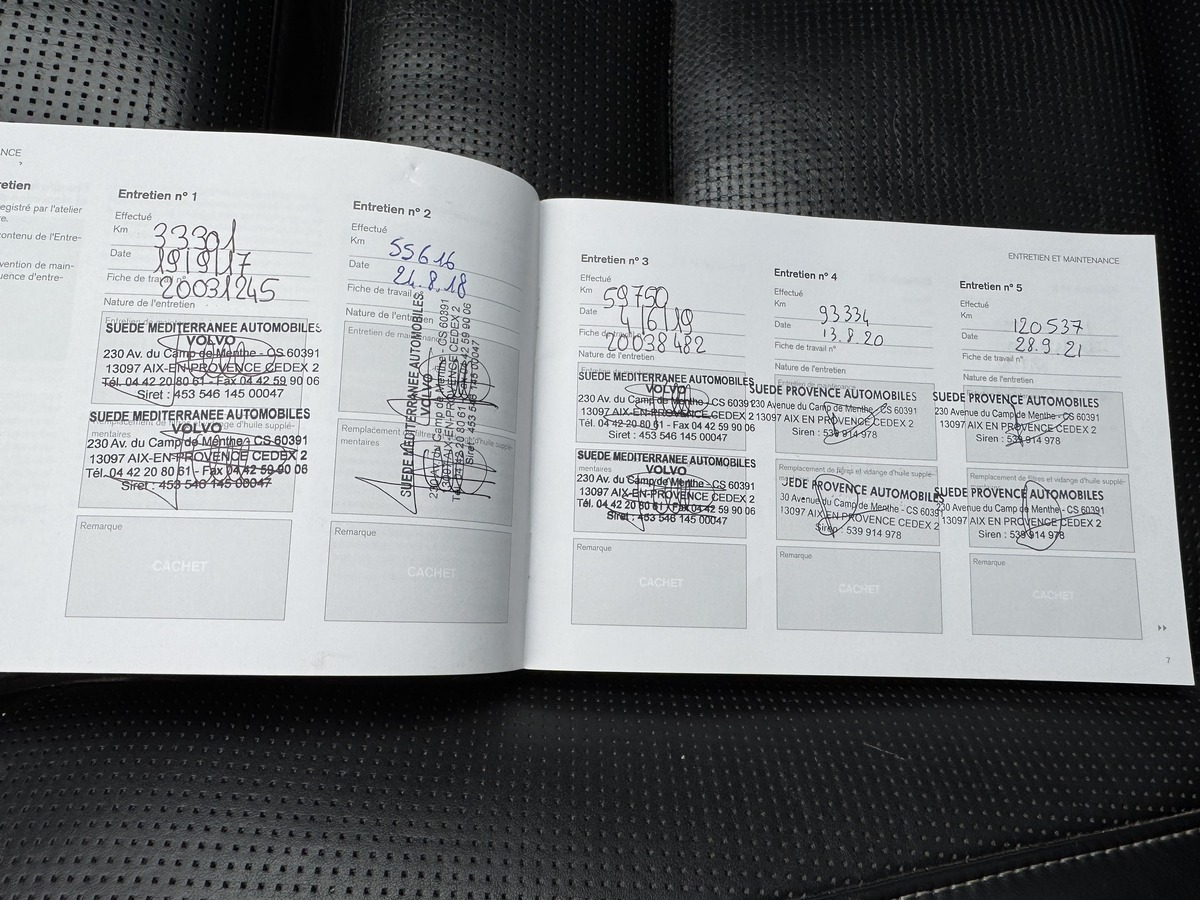 NCE
retien
egistré par l'atelier
re.
contenu de l'Entre-
vention de main-
uence d'entre-
Entretien n° 1
Effectué
Km 33301
Date 19/9/17
Fiche de travail n° 20031245
Nature de l'entretien
Entretien de maintenance
SUEDE MEDITERRANEE AUTOMOBILES
VOLVO
230 Av. du Camp de Menthe - CS 60391
13097 AIX-EN-PROVENCE CEDEX 2
Tél. 04 42 20 80 61 - Fax 04 42 59 90 06
Siret : 453 546 145 00047
mentaires
SUEDE MEDITERRANEE AUTOMOBILES
VOLVO
230 Av. du Camp de Menthe - CS 60391
13097 AIX-EN-PROVENCE CEDEX 2
Tél. 04 42 20 80 61 - Fax 04 42 59 90 06
Siret : 453 546 145 00047
Remarque
CACHET
Entretien n° 2
Effectué
Km 55616
Date 21.8.18
Fiche de travail n°
Nature de l'entretien
Entretien de maintenance
Remplacement de filtres et vidange d'huile supplé-
mentaires
SUEDE MEDITERRANEE AUTOMOBILES
VOLVO
230 Av. du Camp de Menthe - CS 60391
13097 AIX-EN-PROVENCE CEDEX 2
Tél. 04 42 20 80 61 - Fax 04 42 59 90 06
Siret : 453 546 145 00047
Remarque
CACHET
ENTRETIEN ET MAINTENANCE
Entretien n° 3
Effectué
Km 59750
Date 4/6/19
Fiche de travail n° 20038482
Nature de l'entretien
SUEDE MEDITERRANEE AUTOMOBILES
VOLVO
230 Av. du Camp de Menthe - CS 60391
13097 AIX-EN-PROVENCE CEDEX 2
Tél. 04 42 20 80 61 - Fax 04 42 59 90 06
Siret : 453 546 145 00047
mentaires
SUEDE MEDITERRANEE AUTOMOBILES
VOLVO
230 Av. du Camp de Menthe - CS 60391
13097 AIX-EN-PROVENCE CEDEX 2
Tél. 04 42 20 80 61 - Fax 04 42 59 90 06
Siret : 453 546 145 00047
Remarque
CACHET
Entretien n° 4
Effectué
Km 93334
Date 13.8.20
Fiche de travail n°
Nature de l'entretien
Entretien de maintenance
SUEDE PROVENCE AUTOMOBILES
230 Avenue du Camp de Menthe - CS 60391
13097 AIX EN PROVENCE CEDEX 2
Siren : 539 914 978
Remplacement de filtres et vidange d'huile supplé-
JEDE PROVENCE AUTOMOBILES
30 Avenue du Camp de Menthe - CS 60391
13097 AIX EN PROVENCE CEDEX 2
Siren : 539 914 978
Remarque
CACHET
Entretien n° 5
Effectué
Km 120537
Date 28.9.21
Fiche de travail n°
Nature de l'entretien
SUEDE PROVENCE AUTOMOBILES
230 Avenue du Camp de Menthe - CS 60391
13097 AIX EN PROVENCE CEDEX 2
Siren : 539 914 978
Remplacement de filtres et vidange d'huile supplé-
SUEDE PROVENCE AUTOMOBILES
230 Avenue du Camp de Menthe - CS 60391
13097 AIX EN PROVENCE CEDEX 2
Siren : 539 914 978
Remarque
CACHET
7